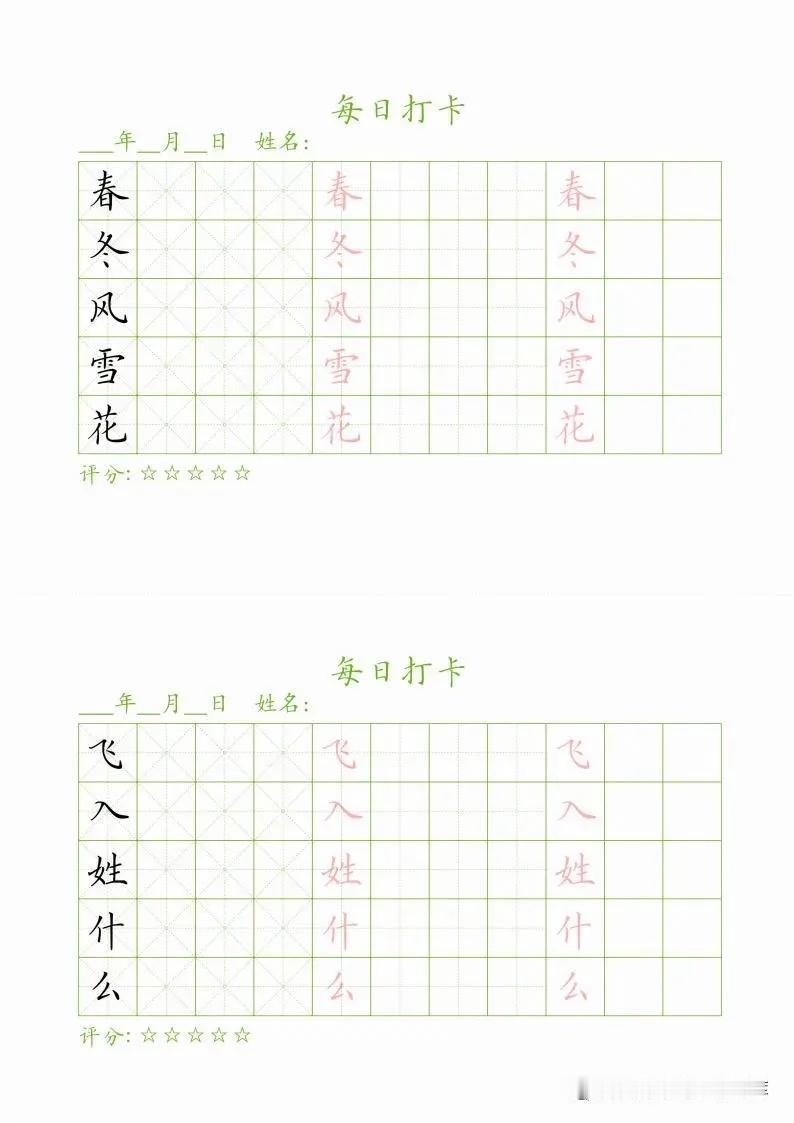 每日打卡
___年__月__日 姓名:
春 春 春
冬 冬 冬
风 风 风
雪 雪 雪
花 花 花
评分: ☆☆☆☆☆
每日打卡
___年__月__日 姓名:
飞 飞 飞
入 入 入
姓 姓 姓
什 什 什
么 么 么
评分: ☆☆☆☆☆